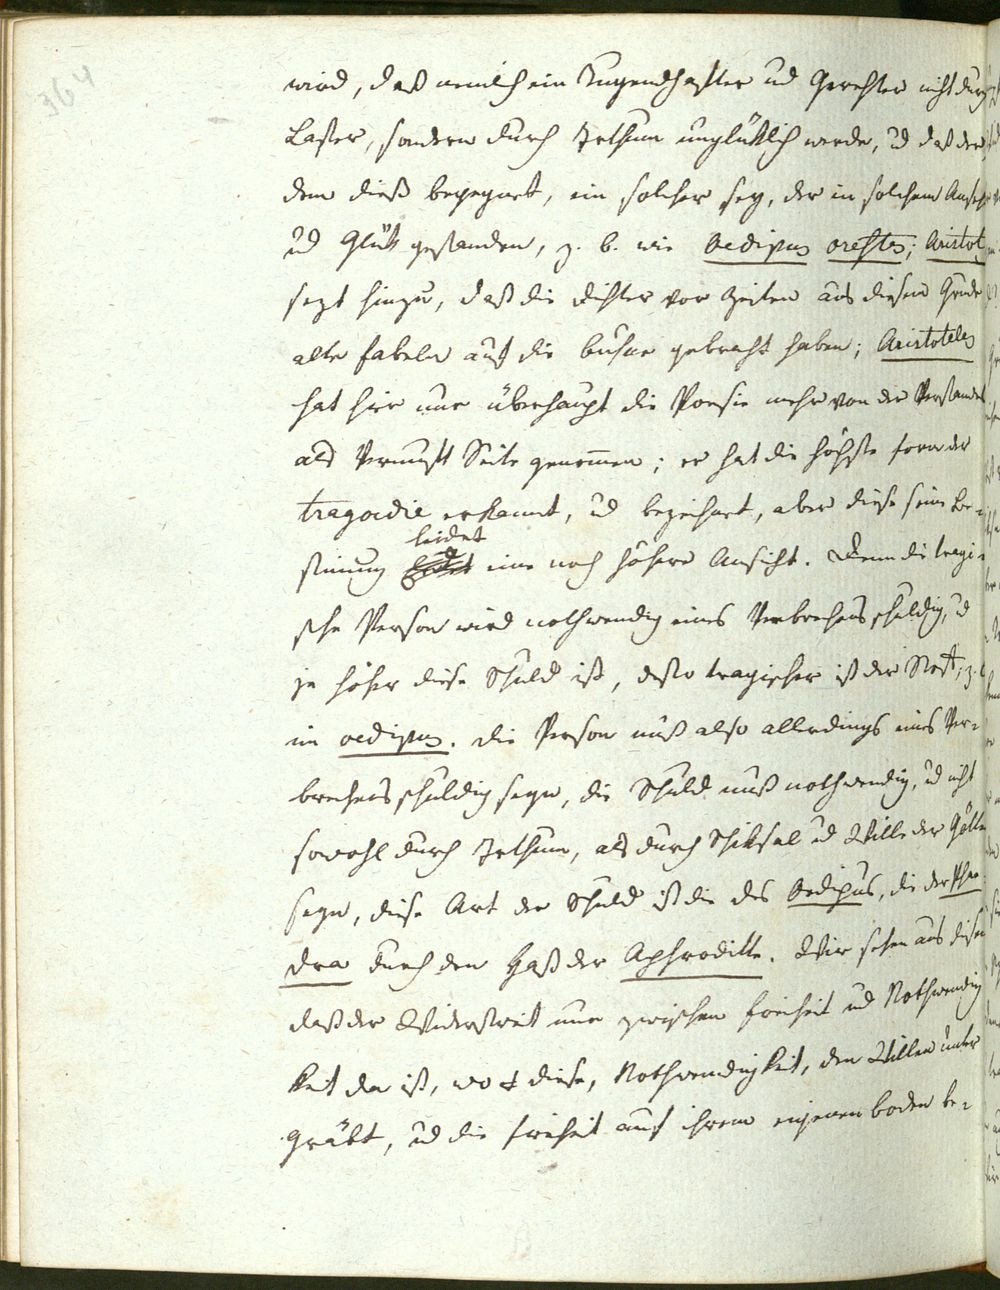 364
wird, daß nemlich ein Tugendhafter ud Gerechter nicht durch
Laster, sondern durch Irthum unglüklich werde, ud daß der,
dem dieß begegnet, ein solcher sey, der in solchem Anseh
ud Glük gestanden, z. b. wie Oedipus orestes; Aristot
sezt hinzu, daß die Dichter vor Zeiten aus diesem Grude
alte fabeln auf die bühne gebracht haben; Aristoteles
hat hier nur überhaupt die Poesie mehr von der Verstandes
als Vernunft Seite genomen; er hat die höchste form der
tragoedie erkannt, ud bezeichnet, aber diese seine Be-
stimung leidet eine noch höhere Ansicht. Denn die tragi-
sche Person wird nothwendig eines Verbrechens schuldig, ud
je höher diese Schuld ist, desto tragischer ist der Stoff, z. b
im oedipus. die Person muß also allerdings eines Ver-
brechens schuldig seyn, die Schuld muß nothwendig, ud nicht
sowohl durch Irthum, als durch Schiksal ud Wille der Götter
seyn, diese Art der Schuld ist die des Oedipus, die der Phae-
dra durch den Haß der Aphroditte. Wir sehen aus diesen
daß der Widerstreit nur zwischen freiheit ud Nothwendig
keit da ist, wo diese, Nothwendigkeit, den Willen unter
gräbt, ud die freiheit auf ihrem eigenen boden be-